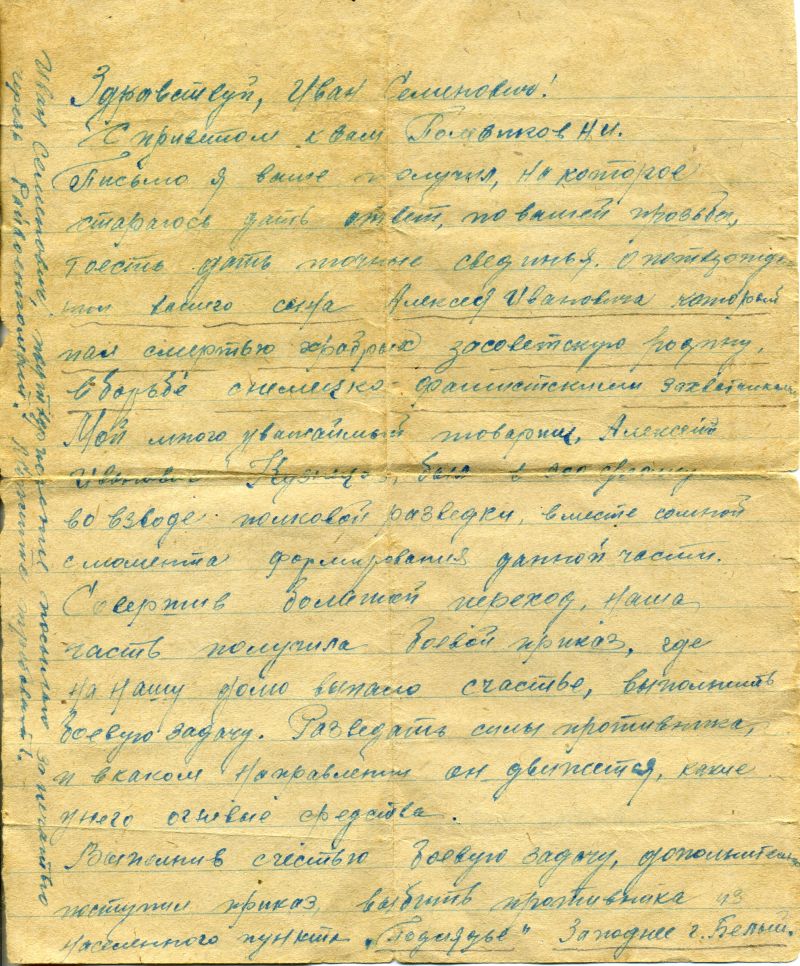 Здравствуй, Иван Семенович!
С приветом к вам Полевиков Н.И.
Письмо я ваше получил, на которое
стараюсь дать ответ, по вашей прозьбы,
тоесть дать точные свединья. О потвзожде
нии вашего сына Алексея Ивановича который
пал смертью храбрых засоветскую родину,
в борьбе снемецко фашистскими захватчиками
Мой много уважаймый товарищ, Алексей
Иванович Кузнецов, был в
во взводе полковой разведки, вместе сомной
с момента формирования данной части.
Совержив большой переход, наша
часть получила боевой приказ, где
на нашу долю выпало счастье, выполнить
боевую задачу. Разведать силы противника,
и вкаком направлении он движется, какие
унего огневые средства.
Выполнив счестью боевую задачу, дополнительно
поступил приказ, выбить противника из
населенного пункта „Подсядье" Западнее г. Белый.
Иван Семенович, посылаю запечатью
через Райвоенкомат.